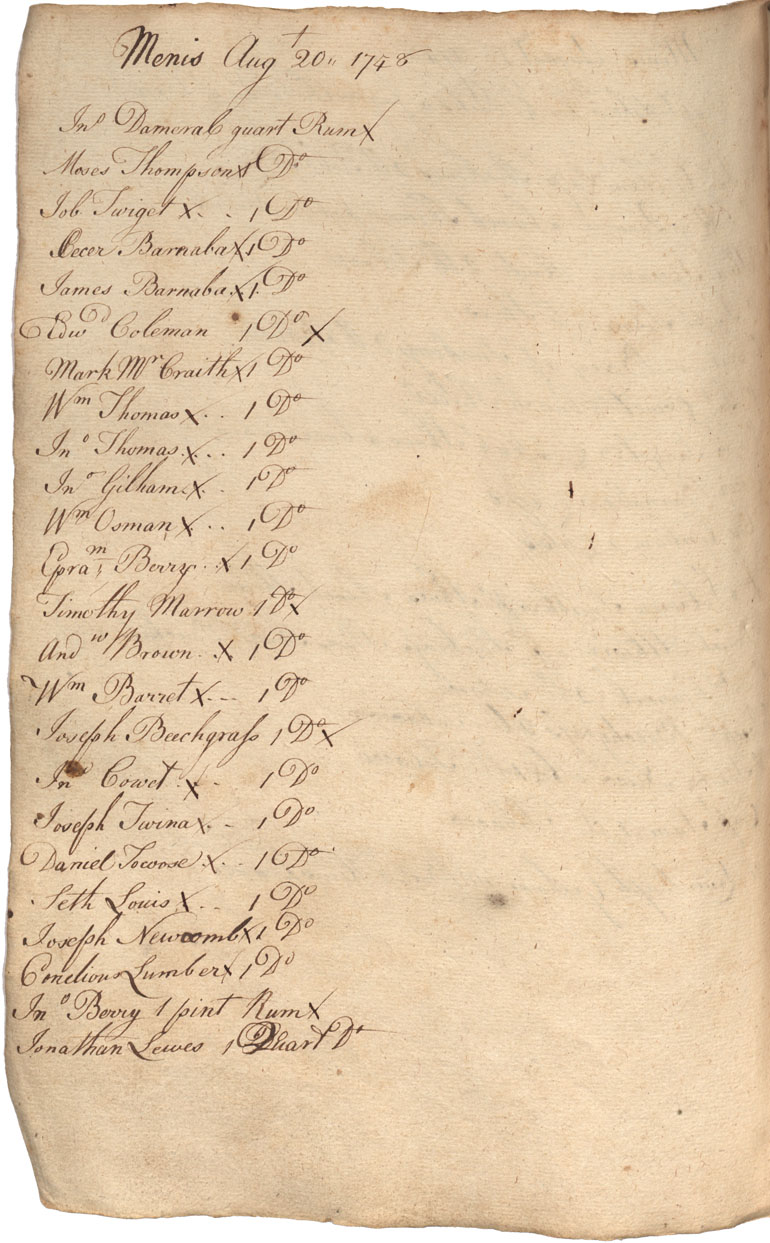 Menis Augt 20" 1748
Jno Dameral quart Rum X
Moses Thompson X 1 Do
Job Twiget X - - 1 Do
Barnaba X 1 Do
James Barnaba X 1 Do
Edwd Coleman 1 Do X
Mark Mr Craith X 1 Do
Wm Thomas X . . 1 Do
Jno Thomas X . . 1 Do
Jno Gilham X . 1 Do
Wm Osman X . . 1 Do
Epram; Berry . X 1 Do
Timothy Marrow 1 Do X
Andw Brown . X 1 Do
Wm Barret X - - 1 Do
Joseph Beechgrass 1 Do X
Jno Cowet . X - 1 Do
Joseph Twina X . - 1 Do
Daniel Tocoose X . . 1 Do
Seth Louis X . . 1 Do
Joseph Newcomb X 1 Do
Cornelious Lumber X 1 Do
Jno Berry 1 pint Rum X
Jonathan Lewes 1 Quart Do